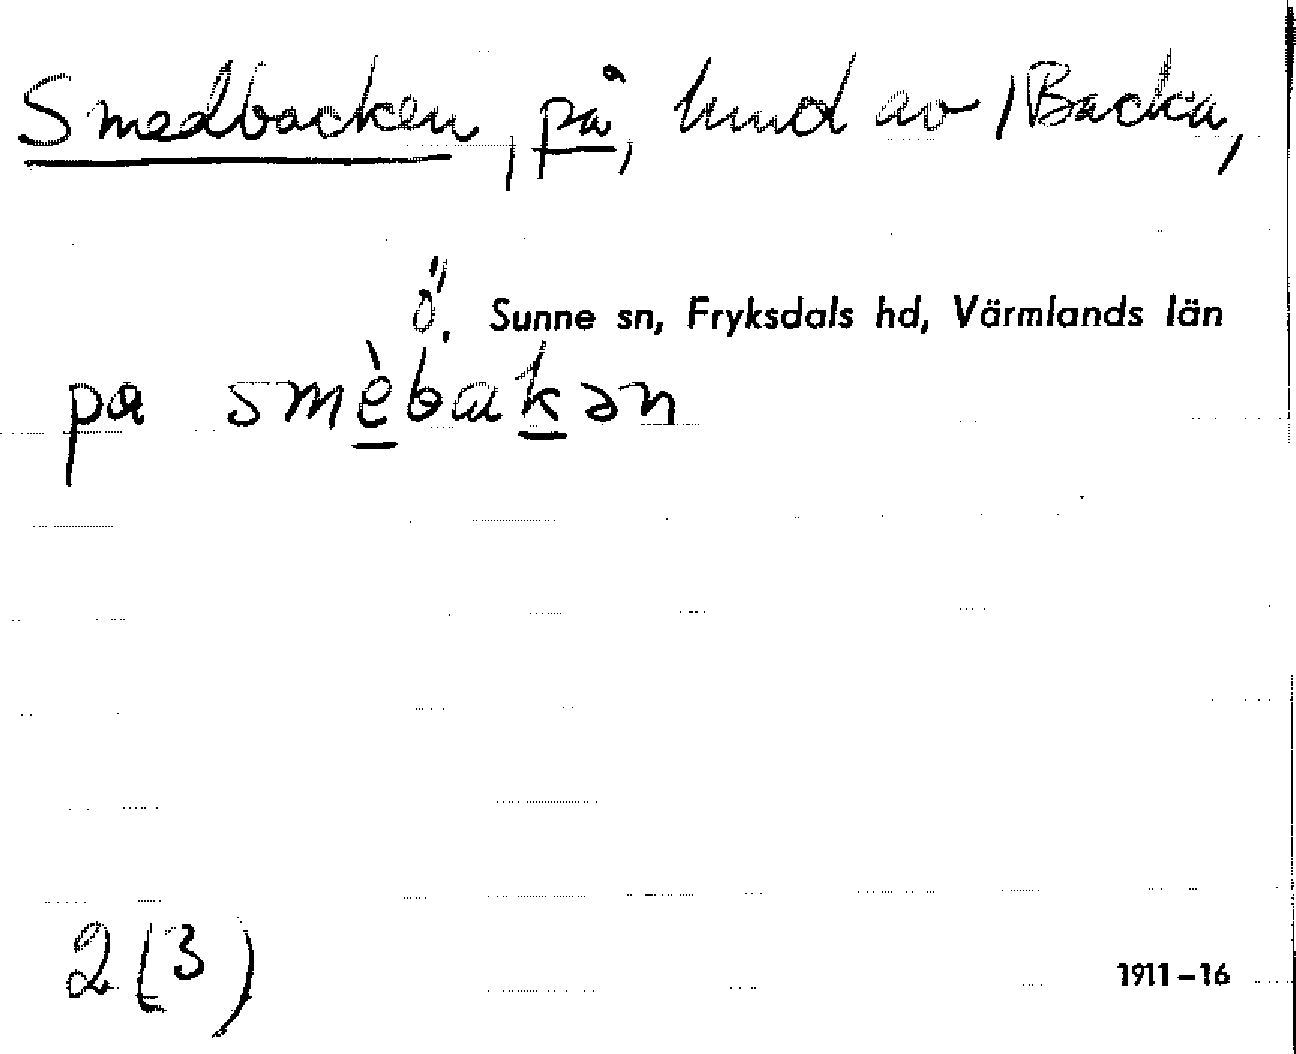 Smedbacken, på, hmd av /Backa,
Ö. Sunne sn, Fryksdals hd, Värmlands län
pa smèbakən
2 (3)
1911-16